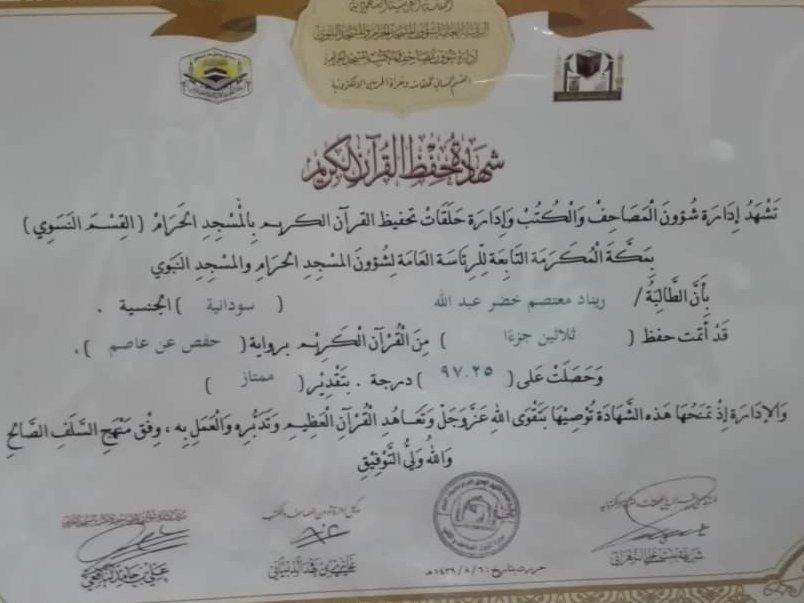 الرئاسة العامة لشؤون المسجد الحرام والمسجد النبوي
إدارة شؤون المصاحف والكتب بالمسجد الحرام
شهادة حفظ القرآن الكريم
تَشْهَدُ إدَارَة شُؤونَ الْمَصَاحِفْ وَالْكُتُبْ وَإِدَارَة حَلَقَاتْ تحفيظ القرآن الكريم بِالْمَسْجِدِ الحَرَامْ ( القِسْمَ النَسَوِي )
بِمَكَّةَ الْمُكَرَمَة التَابِعَة لِلِّرئاسَة العَامَة لِشُؤونَ المَسْجِدِ الحَرَامِ والمَسْجِدِ النَبَوِي
بِأَنَّ الطَّالِبَةُ / ريناد معتصم خضر عبد الله ( سودانية ) الجنسية .
قَدْ أَتمت حفظ ( ثلاثين جزءًا ) مِنَ الْقُرْآنِ الْكَرِيْمِ برواية ( حفص عن عاصم ) .
وَحَصَلَتْ عَلى ( ٩٧.٢٥ ) درجة . بتَقْدِيْر ( ممتاز )
وَالإدَارَة إذ تَمنَحُهَا هَذه الشَّهَادَة تُوْصِيْهَا بِتَقْوَى اللهِ عَزَّ وَجَلّ وَتَعَاهُدِ الْقُرْآنِ الْعَظِيمِ وَتَدَبُّرِه وَالْعَمَلِ بِه ، وِفْق مَنْهَجِ السَّلَفِ الصَّالِحِ
وَاللهُ وَلِيُّ التَّوْفِيْقِ
حررت بتاريخ : ١٤٣٩/٨/٦هـ